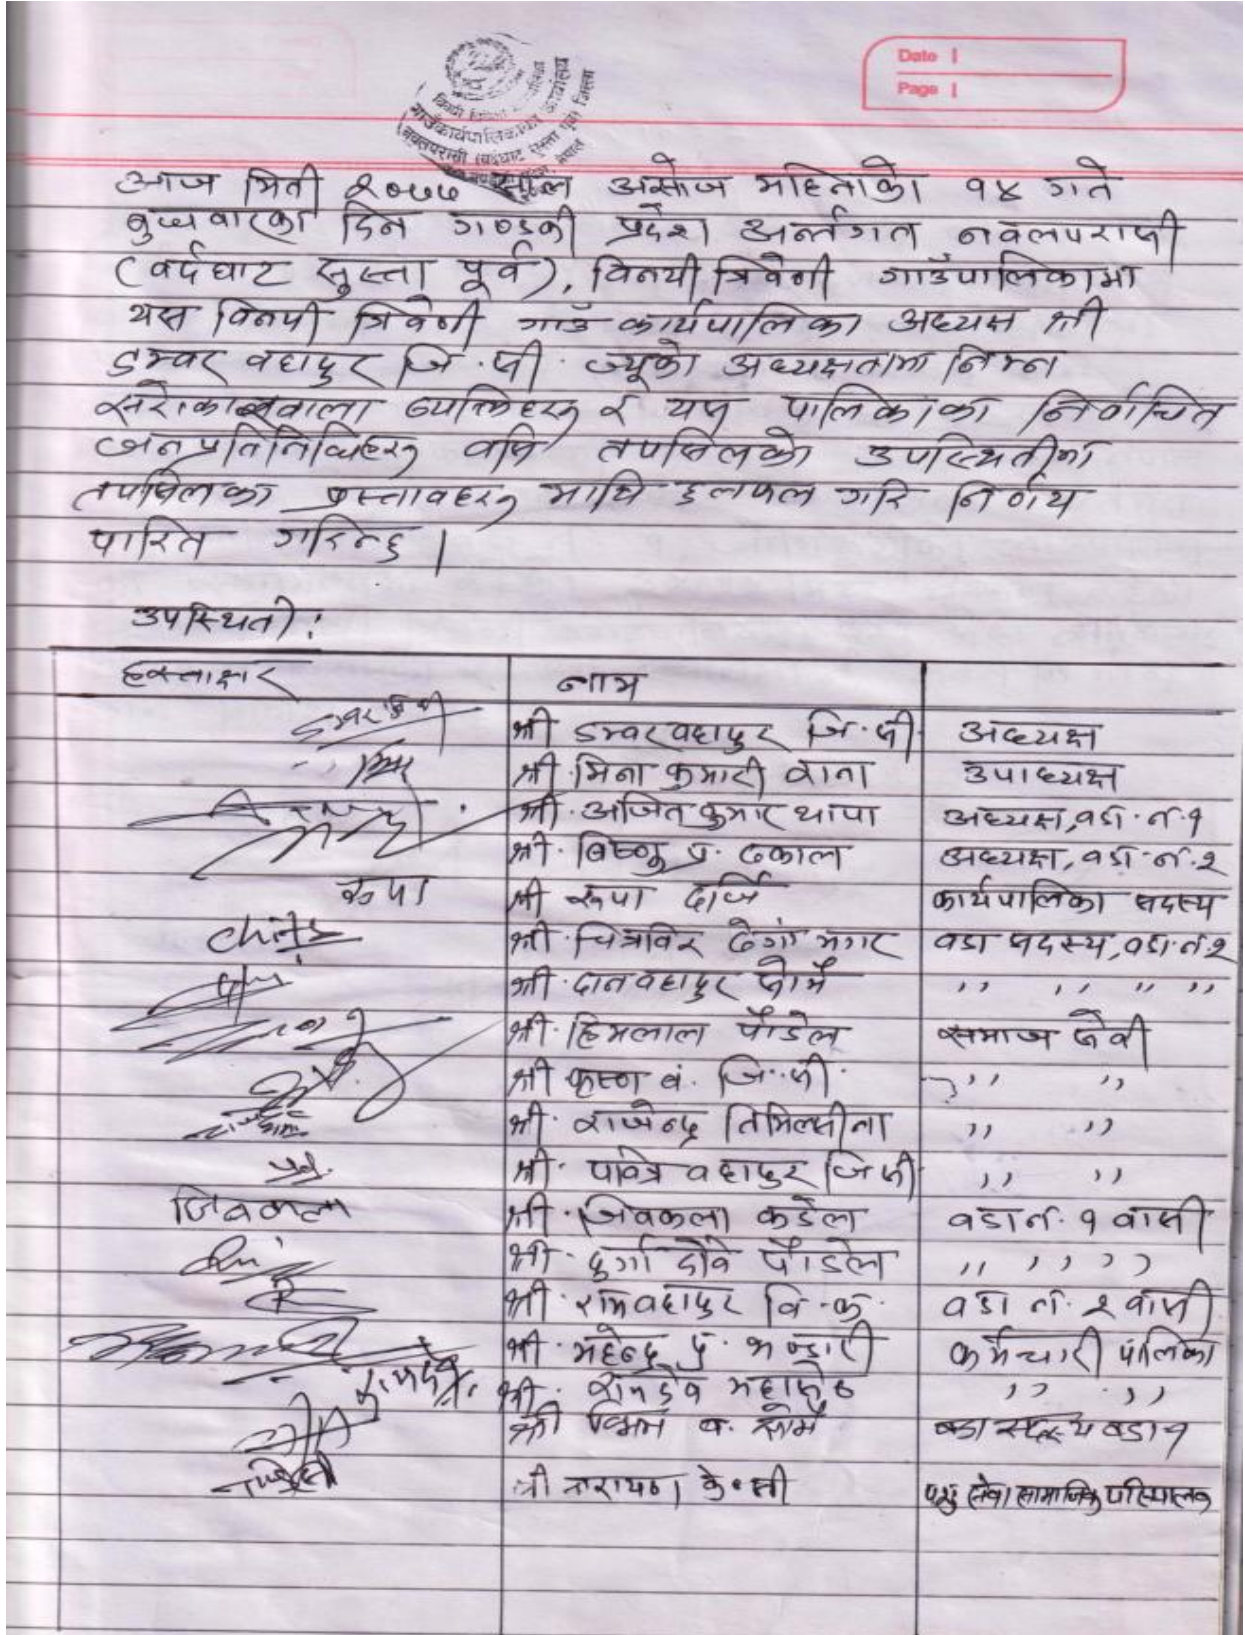 Date
Page
गाउँकार्यपालिकाको कार्यालय
आज मिती २०७७ साल असोज महिनाको १४ गते
बुधवारका दिन गण्डकी प्रदेश अर्न्तगत नवलपरासी
(वर्दघाट सुस्ता पूर्व), विनयी त्रिवेणी गाउँपालिकामा
यस विनयी त्रिवेणी गाउँ कार्यपालिका अध्यक्ष श्री
डम्वर वहादुर जि.सी. ज्यूको अध्यक्षतामा निम्न
सरोकारवाला व्यक्तिहरु र यस पालिकाका निर्वाचित
जनप्रतिनिधिहरु वसि तपसिलको उपस्थितीमा
तपसिलका प्रस्तावहरु माथि छलफल गरि निर्णय
पारित गरिन्छ।
उपस्थिती:
हस्ताक्षर नाम
श्री डम्वरवहादुर जि.सी. अध्यक्ष
श्री मिना कुमारी राना उपाध्यक्ष
श्री. अजित कुमार थापा अध्यक्ष, वडा.नं.१
श्री. बिष्णु प्र. ढकाल अध्यक्ष, वडा.नं.२
रुपा श्री रुपा दर्जि कार्यपालिका सदस्य
श्री. चित्रविर ढेंगा मगर वडा सदस्य, वडा.नं.२
श्री. दानवहादुर सोमै ,, ,, ,, ,,
श्री. हिमलाल पौडेल समाज सेवी
श्री कृष्ण वं. जि.सी. ,, ,,
श्री. राजेन्द्र तिमिल्सीना ,, ,,
श्री. पवित्र वहादुर जि सी ,, ,,
जिवकला श्री. जिवकला कडेल वडा नं. १ वासी
श्री. दुर्गा देवि पौडेल ,, ,, ,,
श्री. रामवहादुर वि.क. वडा नं. २ वासी
श्री. महेन्द्र प्र. भण्डारी कर्मचारी पालिका
श्री. रामदेव महासेठ ,, ,,
श्री व. सोमै वडा सदस्य वडा १
श्री नारायण के.सी पशु सेवा सामाजिक परिचालक